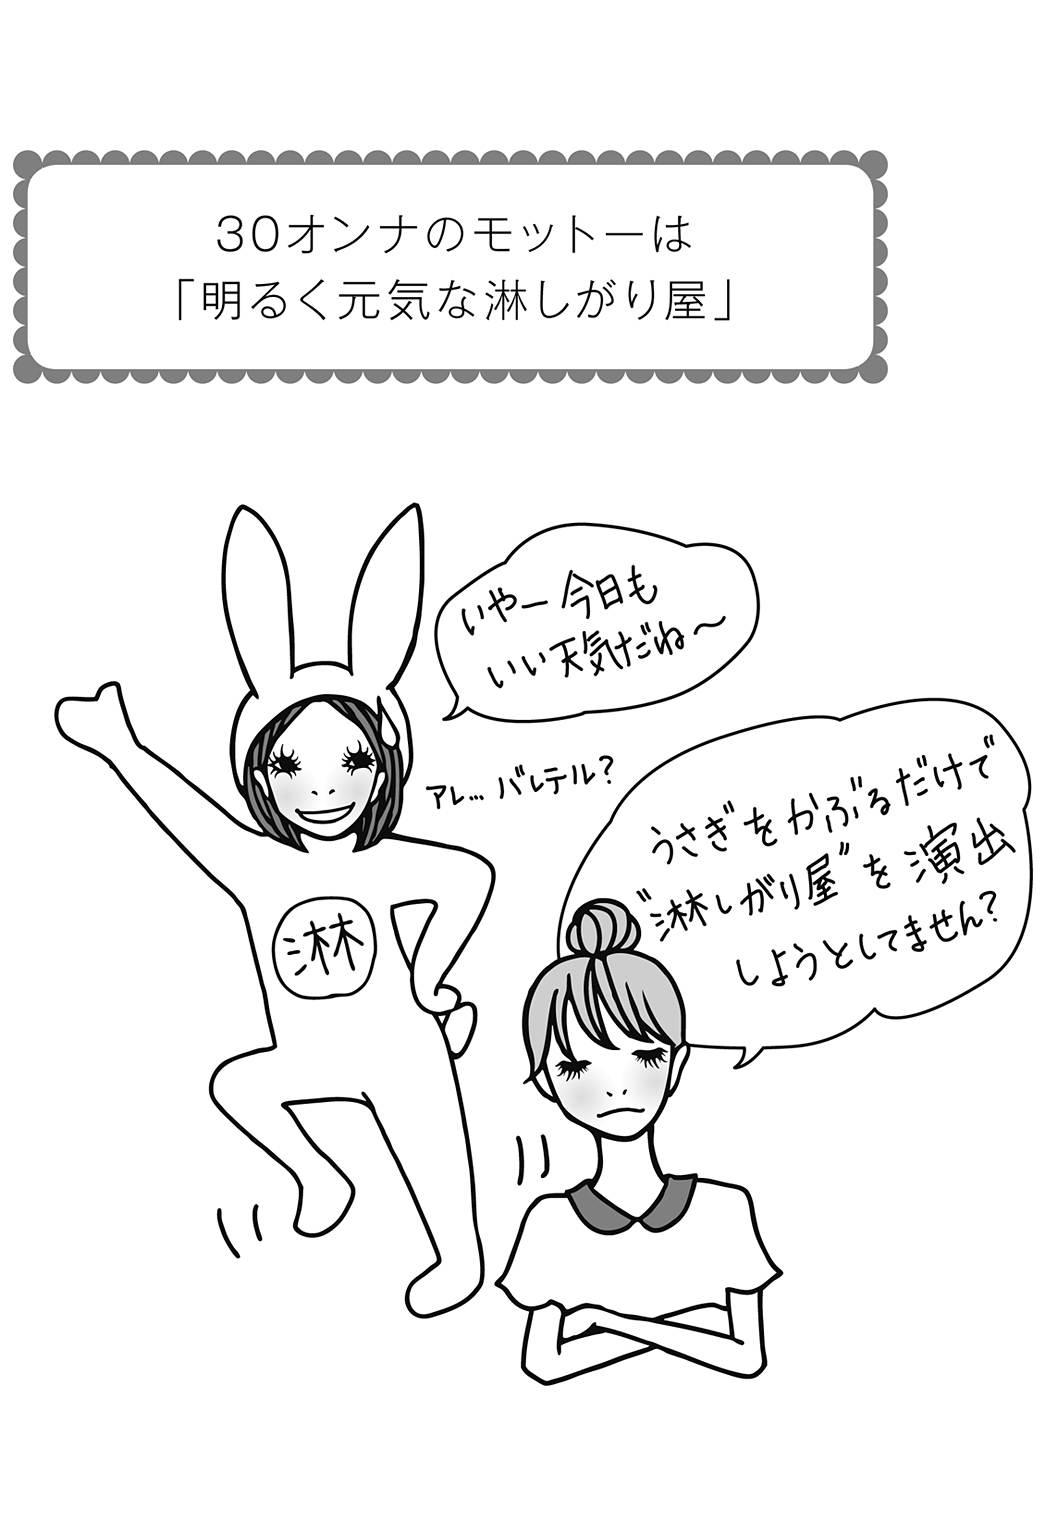 30オンナのモットーは
「明るく元気な淋しがり屋」
いやー今日も
いい天気だね〜
アレ…バレテル？
うさぎをかぶるだけで
”淋しがり屋”を演出
しようとしてません？
淋